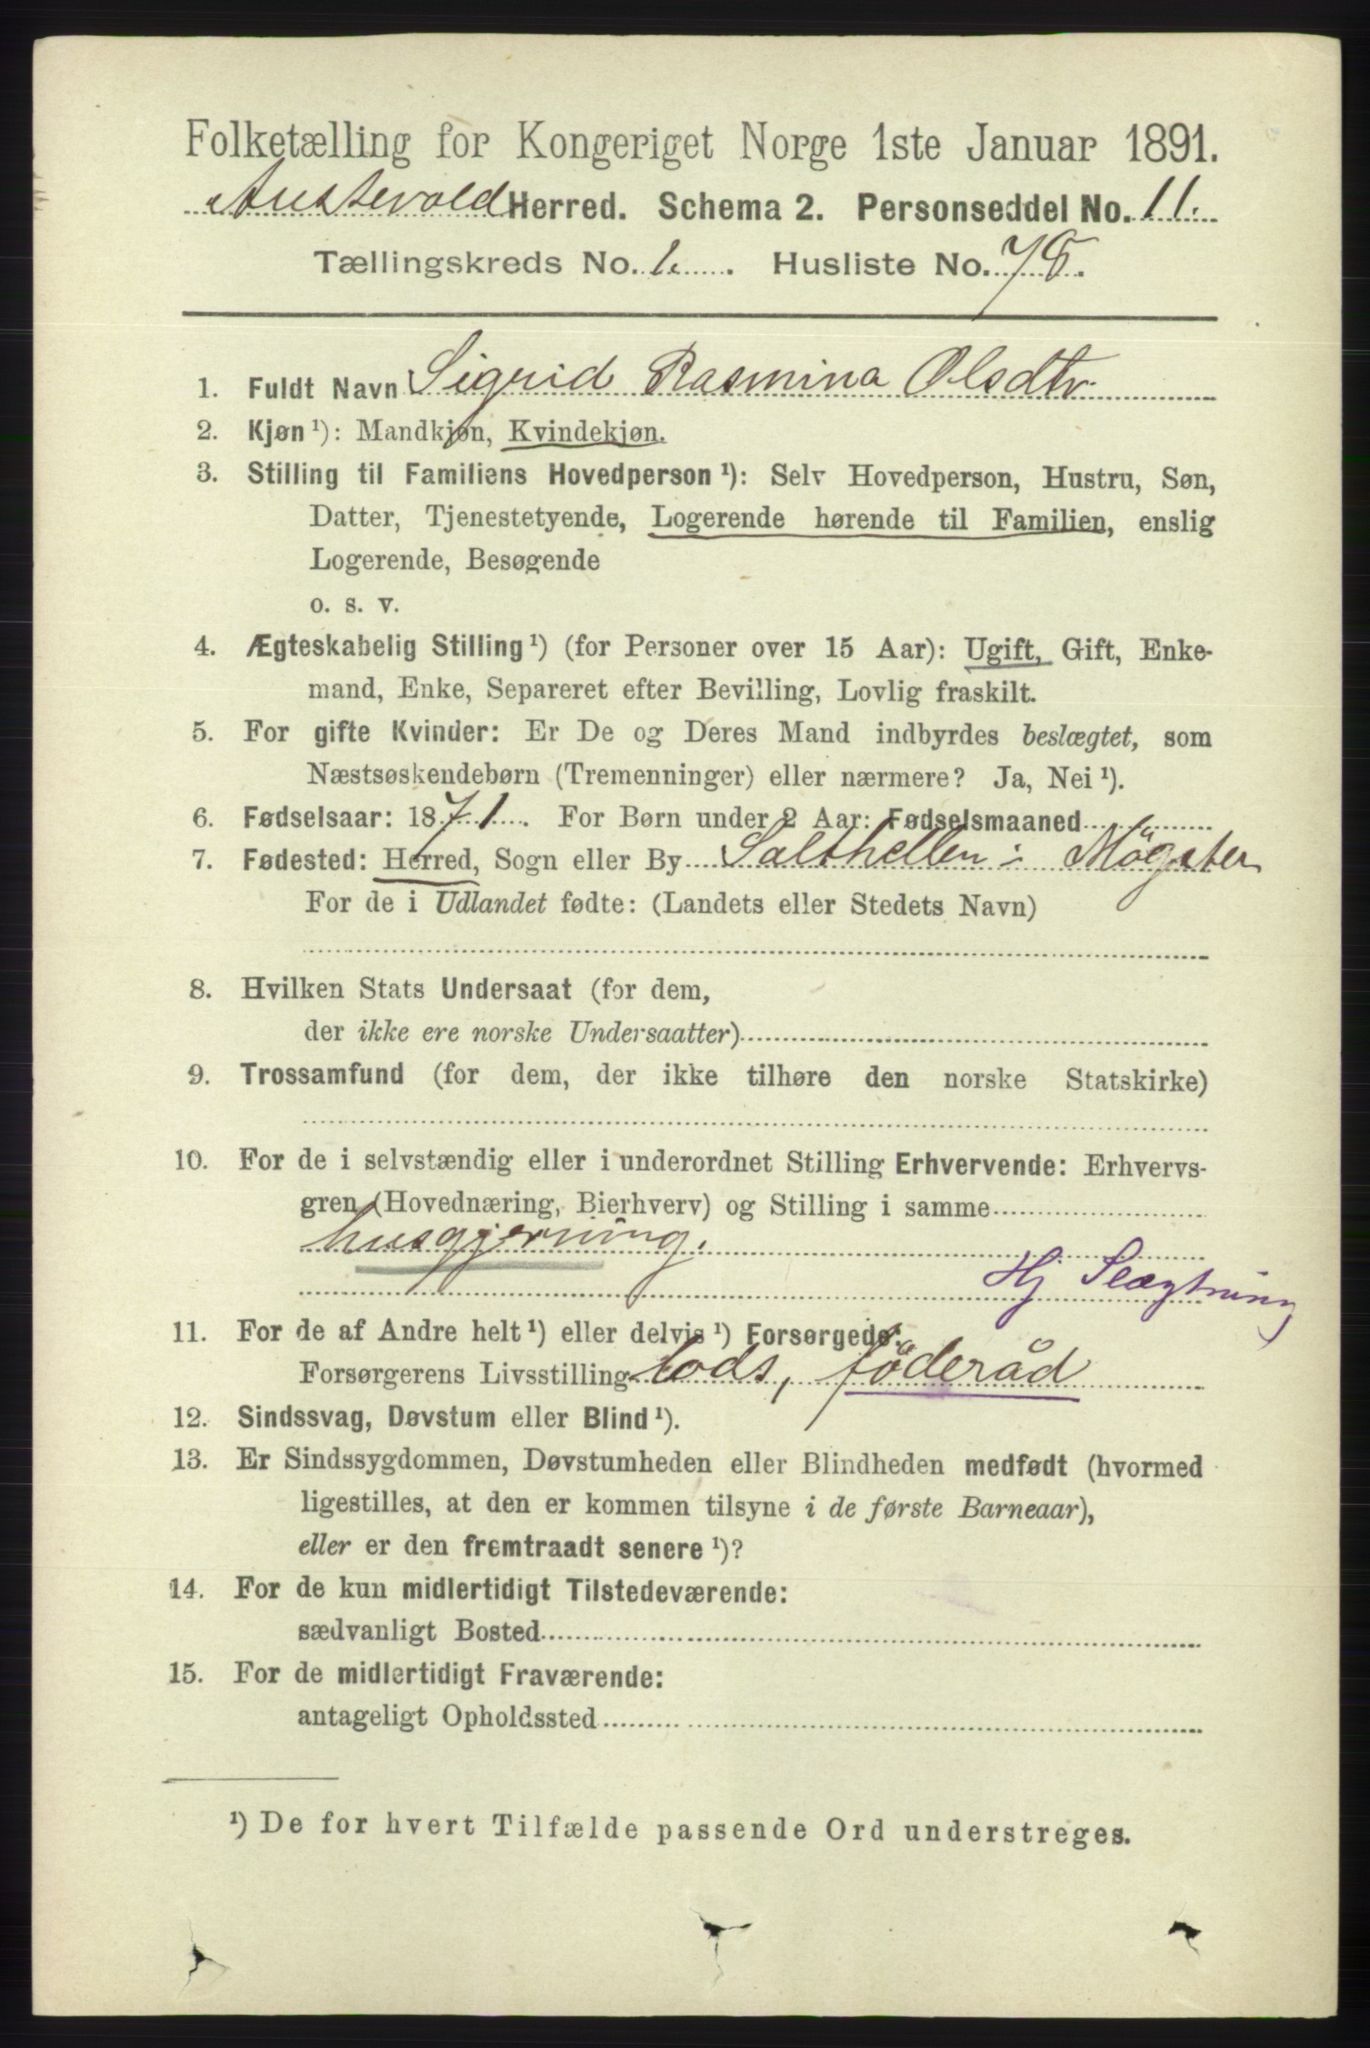 Folketælling for Kongeriget Norge 1ste Januar 1891.
Austevold Herred. Schema 2. Personseddel No. 11.
Tællingskreds No. 1. Husliste No. 78.
1. Fuldt Navn Sigrid Rasmina Olsdtr.
2. Kjøn ¹): Mandkjøn, Kvindekjøn.
3. Stilling til Familiens Hovedperson ¹): Selv Hovedperson, Hustru, Søn,
Datter, Tjenestetyende, Logerende hørende til Familien, enslig
Logerende, Besøgende
o. s. v.
4. Ægteskabelig Stilling ¹) (for Personer over 15 Aar): Ugift, Gift, Enke-
mand, Enke, Separeret efter Bevilling, Lovlig fraskilt.
5. For gifte Kvinder: Er De og Deres Mand indbyrdes beslægtet, som
Næstsøskendebørn (Tremenninger) eller nærmere? Ja, Nei ¹).
6. Fødselsaar: 1871. For Børn under 2 Aar: Fødselsmaaned
7. Fødested: Herred, Sogn eller By Salthellen i Møgster
For de i Udlandet fødte: (Landets eller Stedets Navn)
8. Hvilken Stats Undersaat (for dem,
der ikke ere norske Undersaatter)
9. Trossamfund (for dem, der ikke tilhøre den norske Statskirke)
10. For de i selvstændig eller i underordnet Stilling Erhvervende: Erhvervs-
gren (Hovednæring, Bierhverv) og Stilling i samme
husgjerning.
Hj Slægtning
11. For de af Andre helt ¹) eller delvis ¹) Forsørgede:
Forsørgerens Livsstilling Lods, föderåd
12. Sindssvag, Døvstum eller Blind ¹).
13. Er Sindssygdommen, Døvstumheden eller Blindheden medfødt (hvormed
ligestilles, at den er kommen tilsyne i de første Barneaar),
eller er den fremtraadt senere ¹)?
14. For de kun midlertidigt Tilstedeværende:
sædvanligt Bosted
15. For de midlertidigt Fraværende:
antageligt Opholdssted
¹) De for hvert Tilfælde passende Ord understreges.